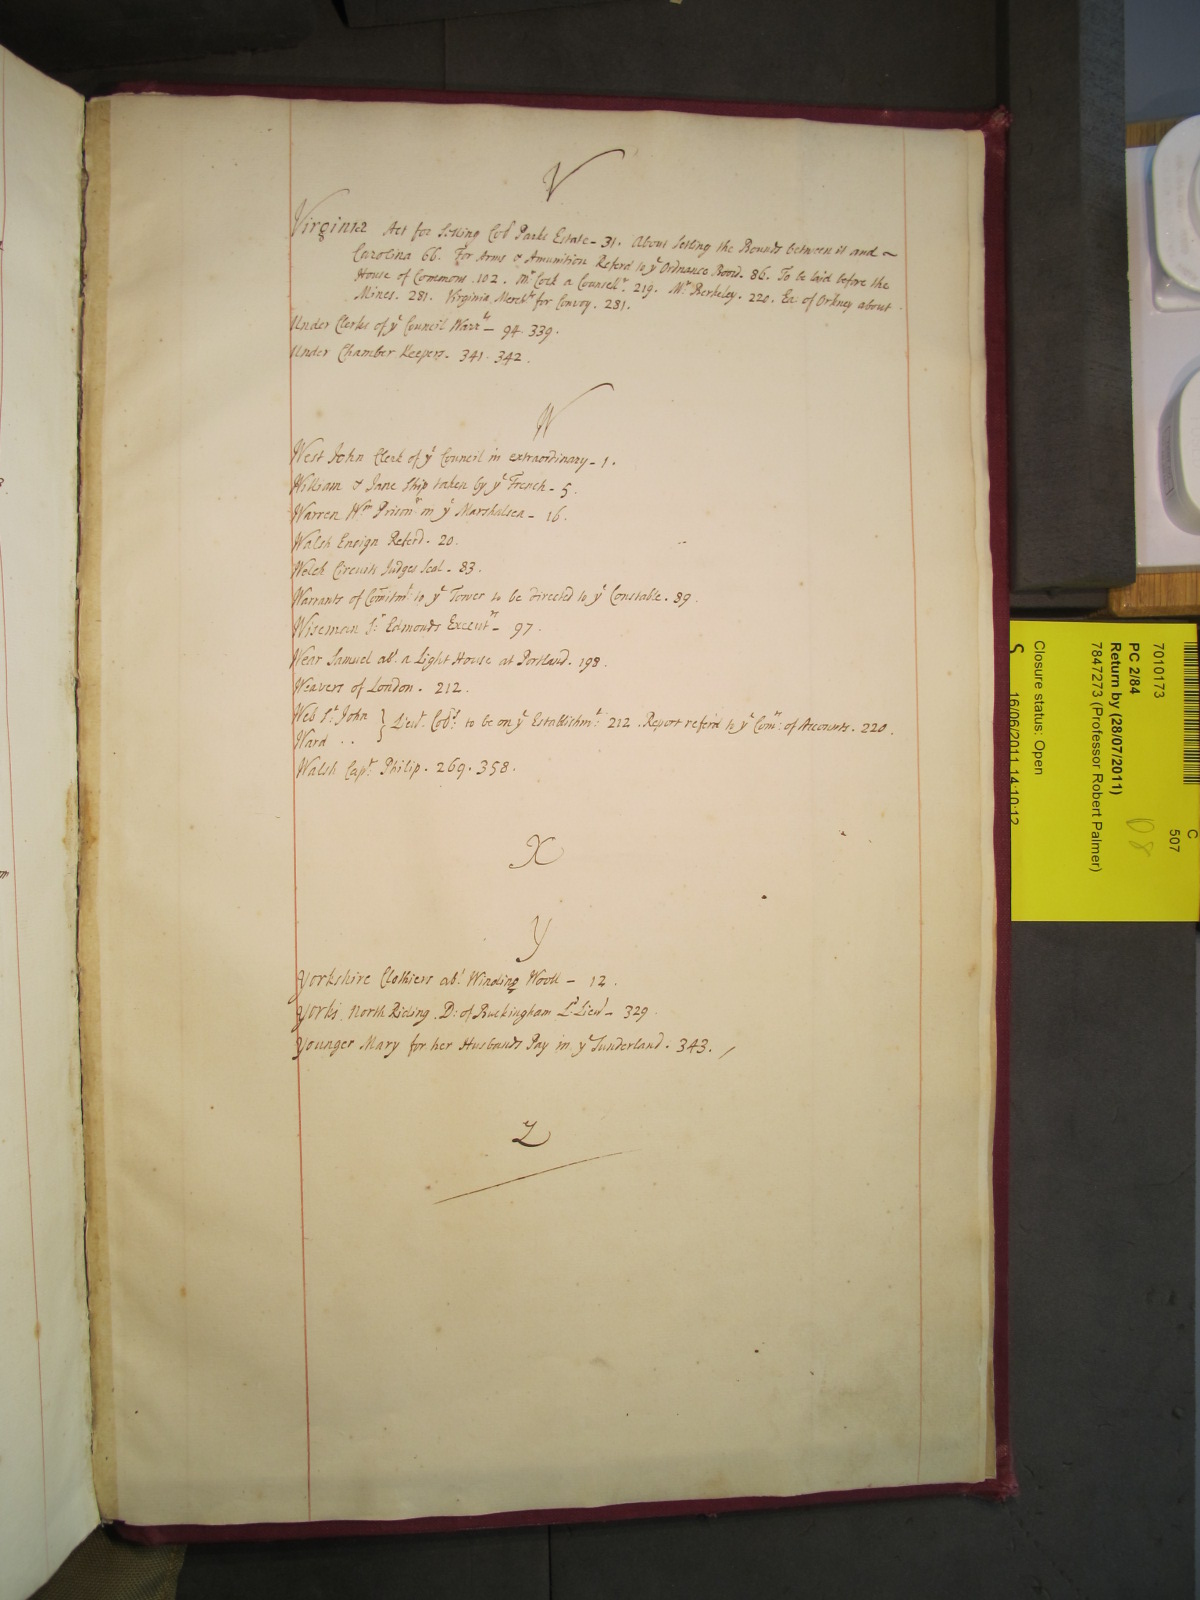 V
Virginia Act for Setling Col Parks Estate - 31. About Setling the Bounds between it and ~
Carolina 66. For Arms & Amunition Referd to yͤ Ordnance Board. 86. To be laid before the
House of Commons. 102. Mͬ Cock a Counselͬ. 219. Mͬ Berkeley. 220. Ea: of Orkney about
Mines. 281. Virginia Merchͭˢ for Convoy. 281.
Under Clerks of yͤ Council Warrͭˢ - 94. 339.
Under Chamber Keepers. 341. 342.
W
West John Clerk of yͤ Council in extraordinary - 1.
William & Jane Ship taken by yͤ French - 5.
Warren Wͫ Prisonͬ in yͤ Marshalsea - 16.
Walsh Ensign Referd. 20.
Welch Circuits Judges Seal - 83.
Warrants of Comitmͭ to yͤ Tower to be directed to yͤ Constable. 89.
Wiseman Sͬ: Edmonds Executͬˢ - 97.
Wear Samuel abͭ. a Light House at Portland. 198.
Weavers of London. 212.
Web Sͭ. John } Lieuͭ. Colˢ: to be on yͤ Establishmͭ: 212. Report referd to yͤ Comͬˢ: of Accounts. 220.
Ward . .
Walsh Capͭ. Philip. 269. 358.
X
Y
Yorkshire Clothiers abͭ. Winding Wooll - 12.
Yorks. North Riding. D: of Buckingham Lͩ Lieuͭ - 329
Younger Mary for her Husbands Pay in yͤ Sunderland. 343.
Z
C
507
7010173
PC 2/84
Return by (28/07/2011)
7847273 (Professor Robert Palmer)
D8
Closure status: Open
S 16/06/2011 14:10:12